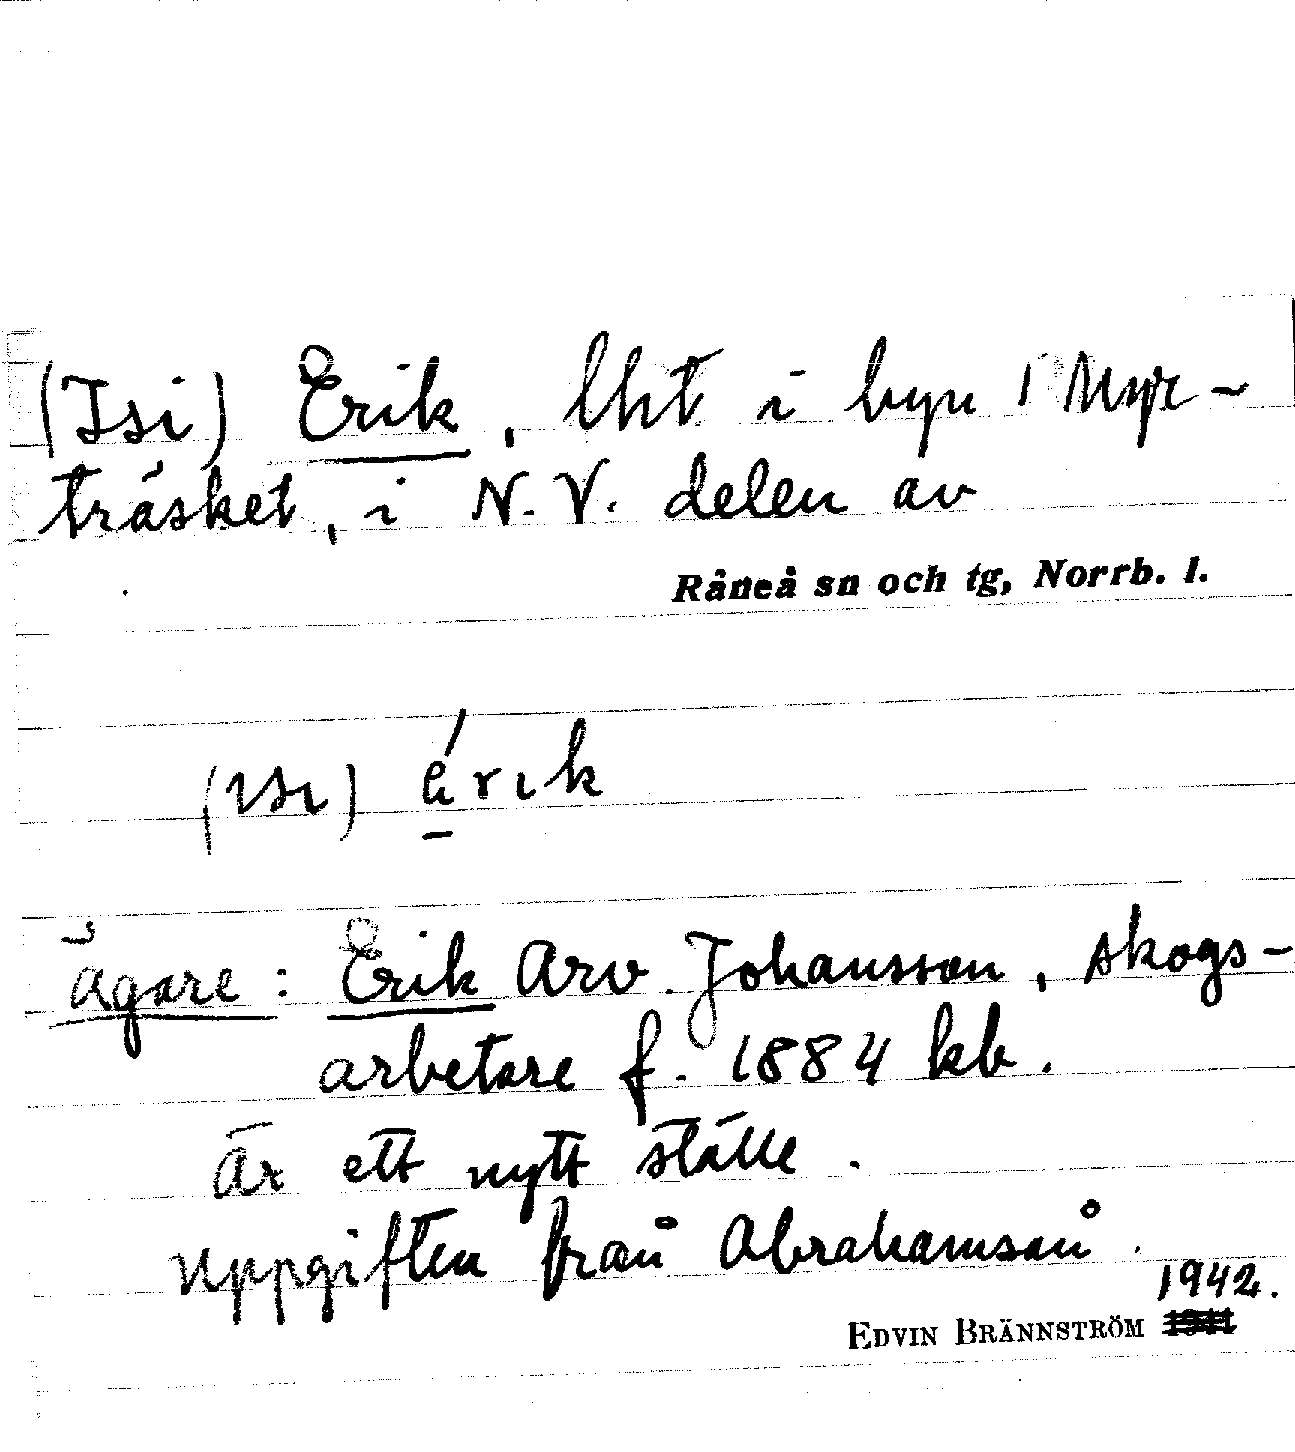 (Isi) Erik, lht i byn 1 Myr-
träsket, i N.V. delen av
Råneå sn och tg, Norrb. l.
(ısı) érık
ägare: Erik Arv. Johansson, skogs-
arbetare f. 1884 kb.
Är ett nytt ställe.
uppgiften från Abrahamsson.
1942.
EDVIN BRÄNNSTRÖM 1941